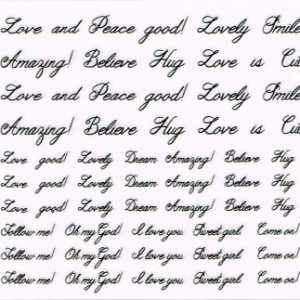 Love and Peace good! Lovely Smile
Amazing! Believe Hug Love is
Love and Peace good! Lovely Smile
Amazing! Believe Hug Love is
Love good! Lovely Dream Amazing! Believe Hug
Love good! Lovely Dream Amazing! Believe Hug
Love good! Lovely Dream Amazing! Believe Hug
Follow me! Oh my God! I love you Sweet girl Come on!
Follow me! Oh my God! I love you Sweet girl Come on!
Follow me! Oh my God! I love you Sweet girl Come on!